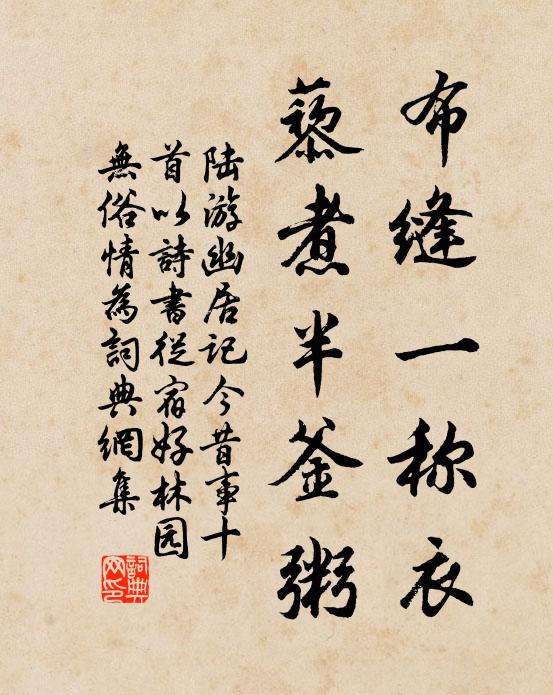 布缝一称衣
藜煮半釜粥
陆游幽居记今昔事十
首以詩書從宿好林园
無俗情為詞典網集
詞典网印